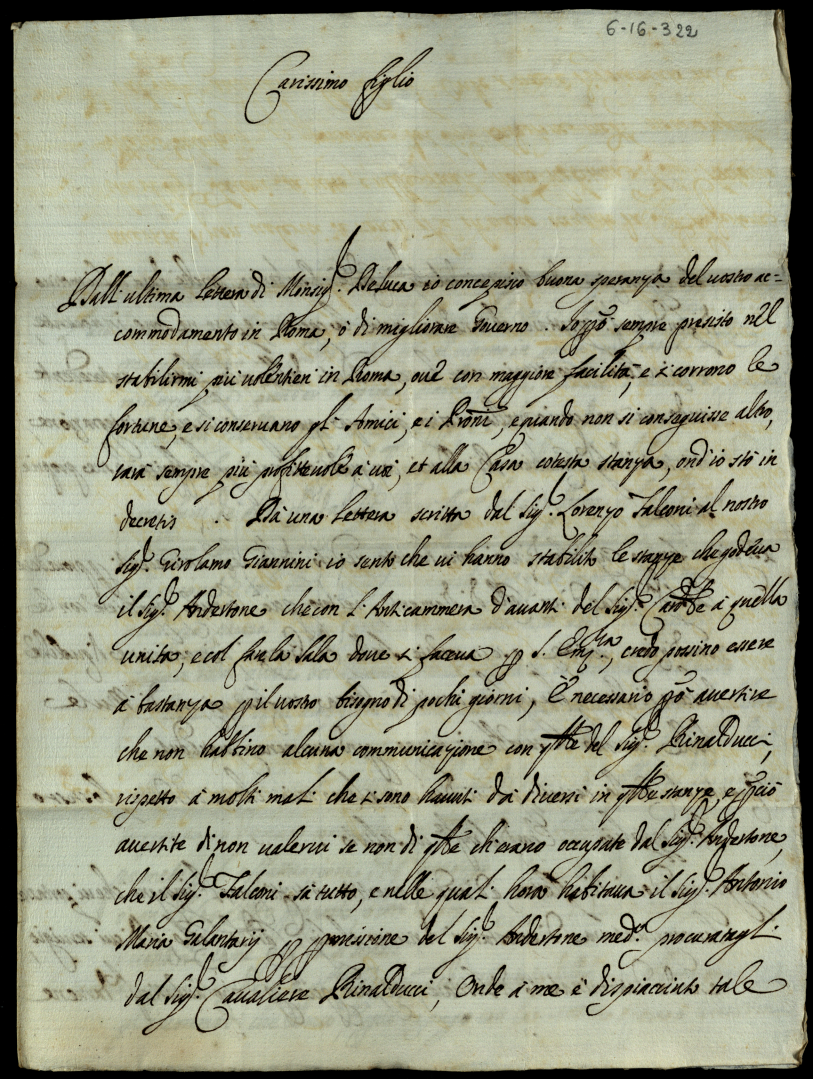 6-16-322
Carissimo figlio
Dall' ultima lettera di Monsig.r Deluca io concepisco buona speranza del vostro ac=
commodamento in Roma, ò di migliorare Governo sempre nel
stabilirmi più volentieri in Roma, ove con maggiore facilità, e si corrono le
fortune, e si conservano gl' Amici, e i Proni, e quando non si conseguisse altro,
sarà sempre più profittevole à voi, et alla Casa cotesta stanza, ond' io stò in
decretis. Dà una lettera scritta dal Sig.r Lorenzo Falconi al nostro
Sig.r Girolamo Giannini io sento che vi hanno stabilito le stanze che godeva
il Sig.r Andertone che con l' Anticammera d'avanti del Sig.r Cardle à quella
unita, e col far la sala dove si faceva p S. Emza, credo possino essere
à bastanza p il vostro bisogno di pochi giorni, È necessario pò avertire
che non habbino alcuna communicazione con qlle del Sig.r Rinalducci,
rispetto à molti mali che si sono havuti dà diversi in qlle stanze, e pciò
avertite di non valervi se non di qlle ch' erano occupate dal Sig.r Andertone,
che il Sig.r Falconi sà tutto, e nelle quali hora habitava il Sig.r Antonio
Maria Galantarij p pmissione del Sig.r Andertone med.o procuratagli
dal Sig.r Cavaliere Rinalducci, Onde à me è dispiaciuto tale